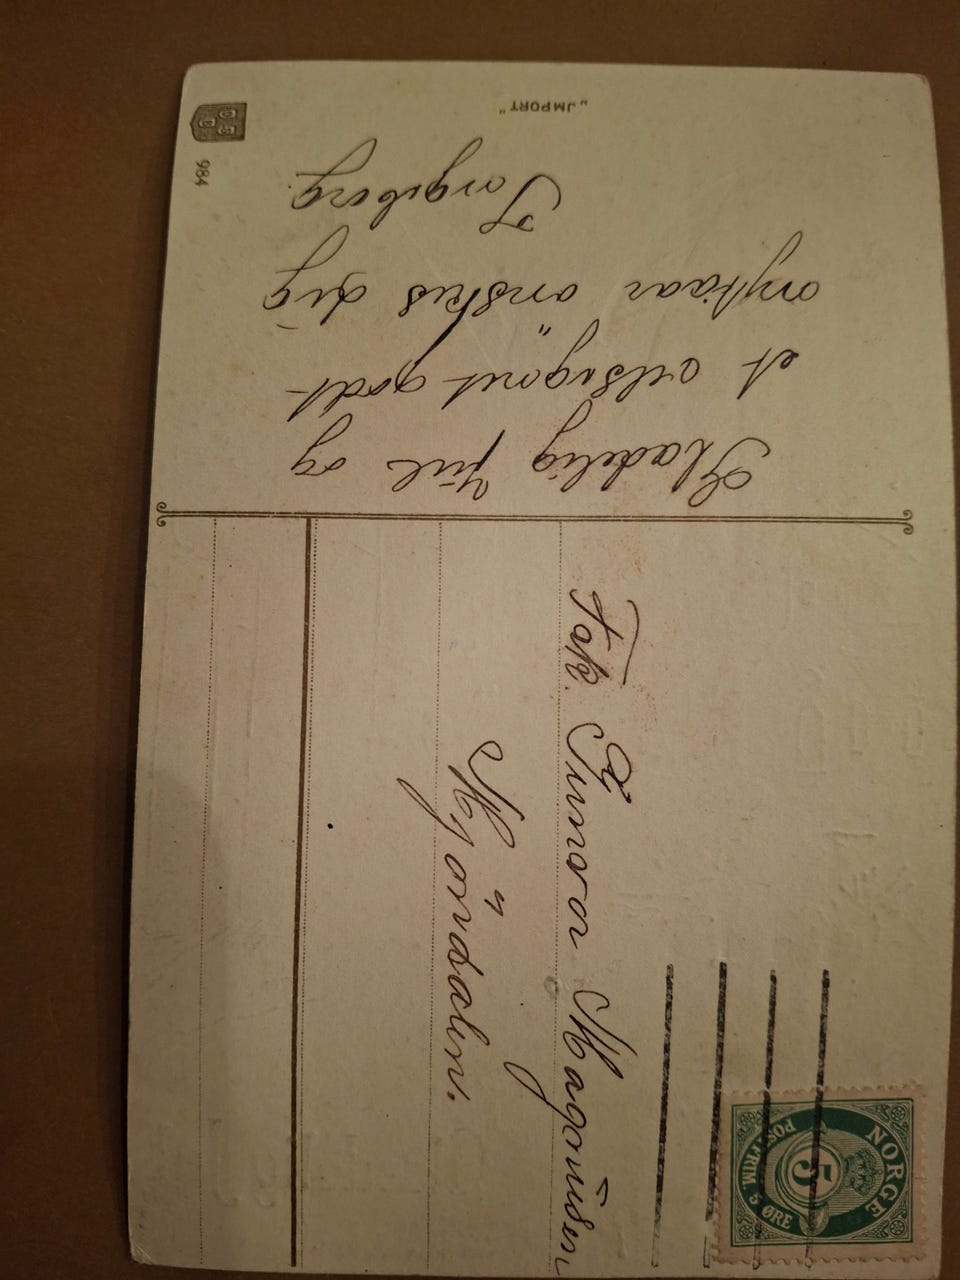 Glædelig Jul og
et velsignet godt
nyttaar ønskes dig
Ingeborg.
Frk. Gunvor Magnüsen
Mjöndalen.
NORGE
5
POSTFRIM. 5 ØRE
„JMPORT"
984